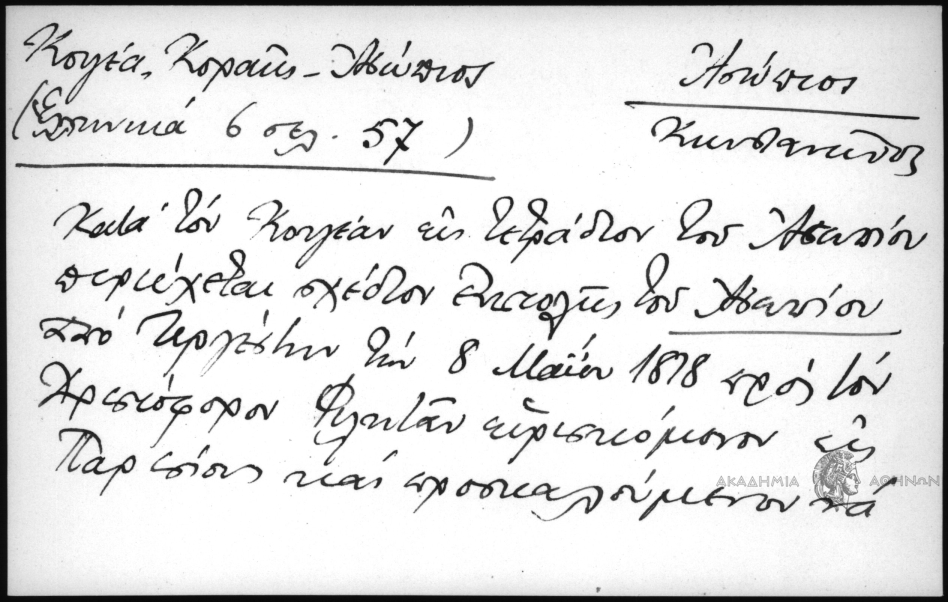 Κουγέα, Κοραῆς - Ἀσώπιος
(Ἑλληνικά 6 σελ. 57)
Ἀσώπιος
Κωνσταντῖνος
Κατά τόν Κουγέαν εἰς τετράδιον τοῦ Ἀσωπίου
περιέχεται σχέδιον ἐπιστολῆς τοῦ Ἀσωπίου
ἀπό Τεργέστην τήν 8 Μαΐου 1818 πρός τόν
Χριστόφορον Φιλητᾶν εὑρισκόμενον εἰς
Παρισίους καί προσκαλούμενον νά
ΑΚΑΔΗΜΙΑ ΑΘΗΝΩΝ